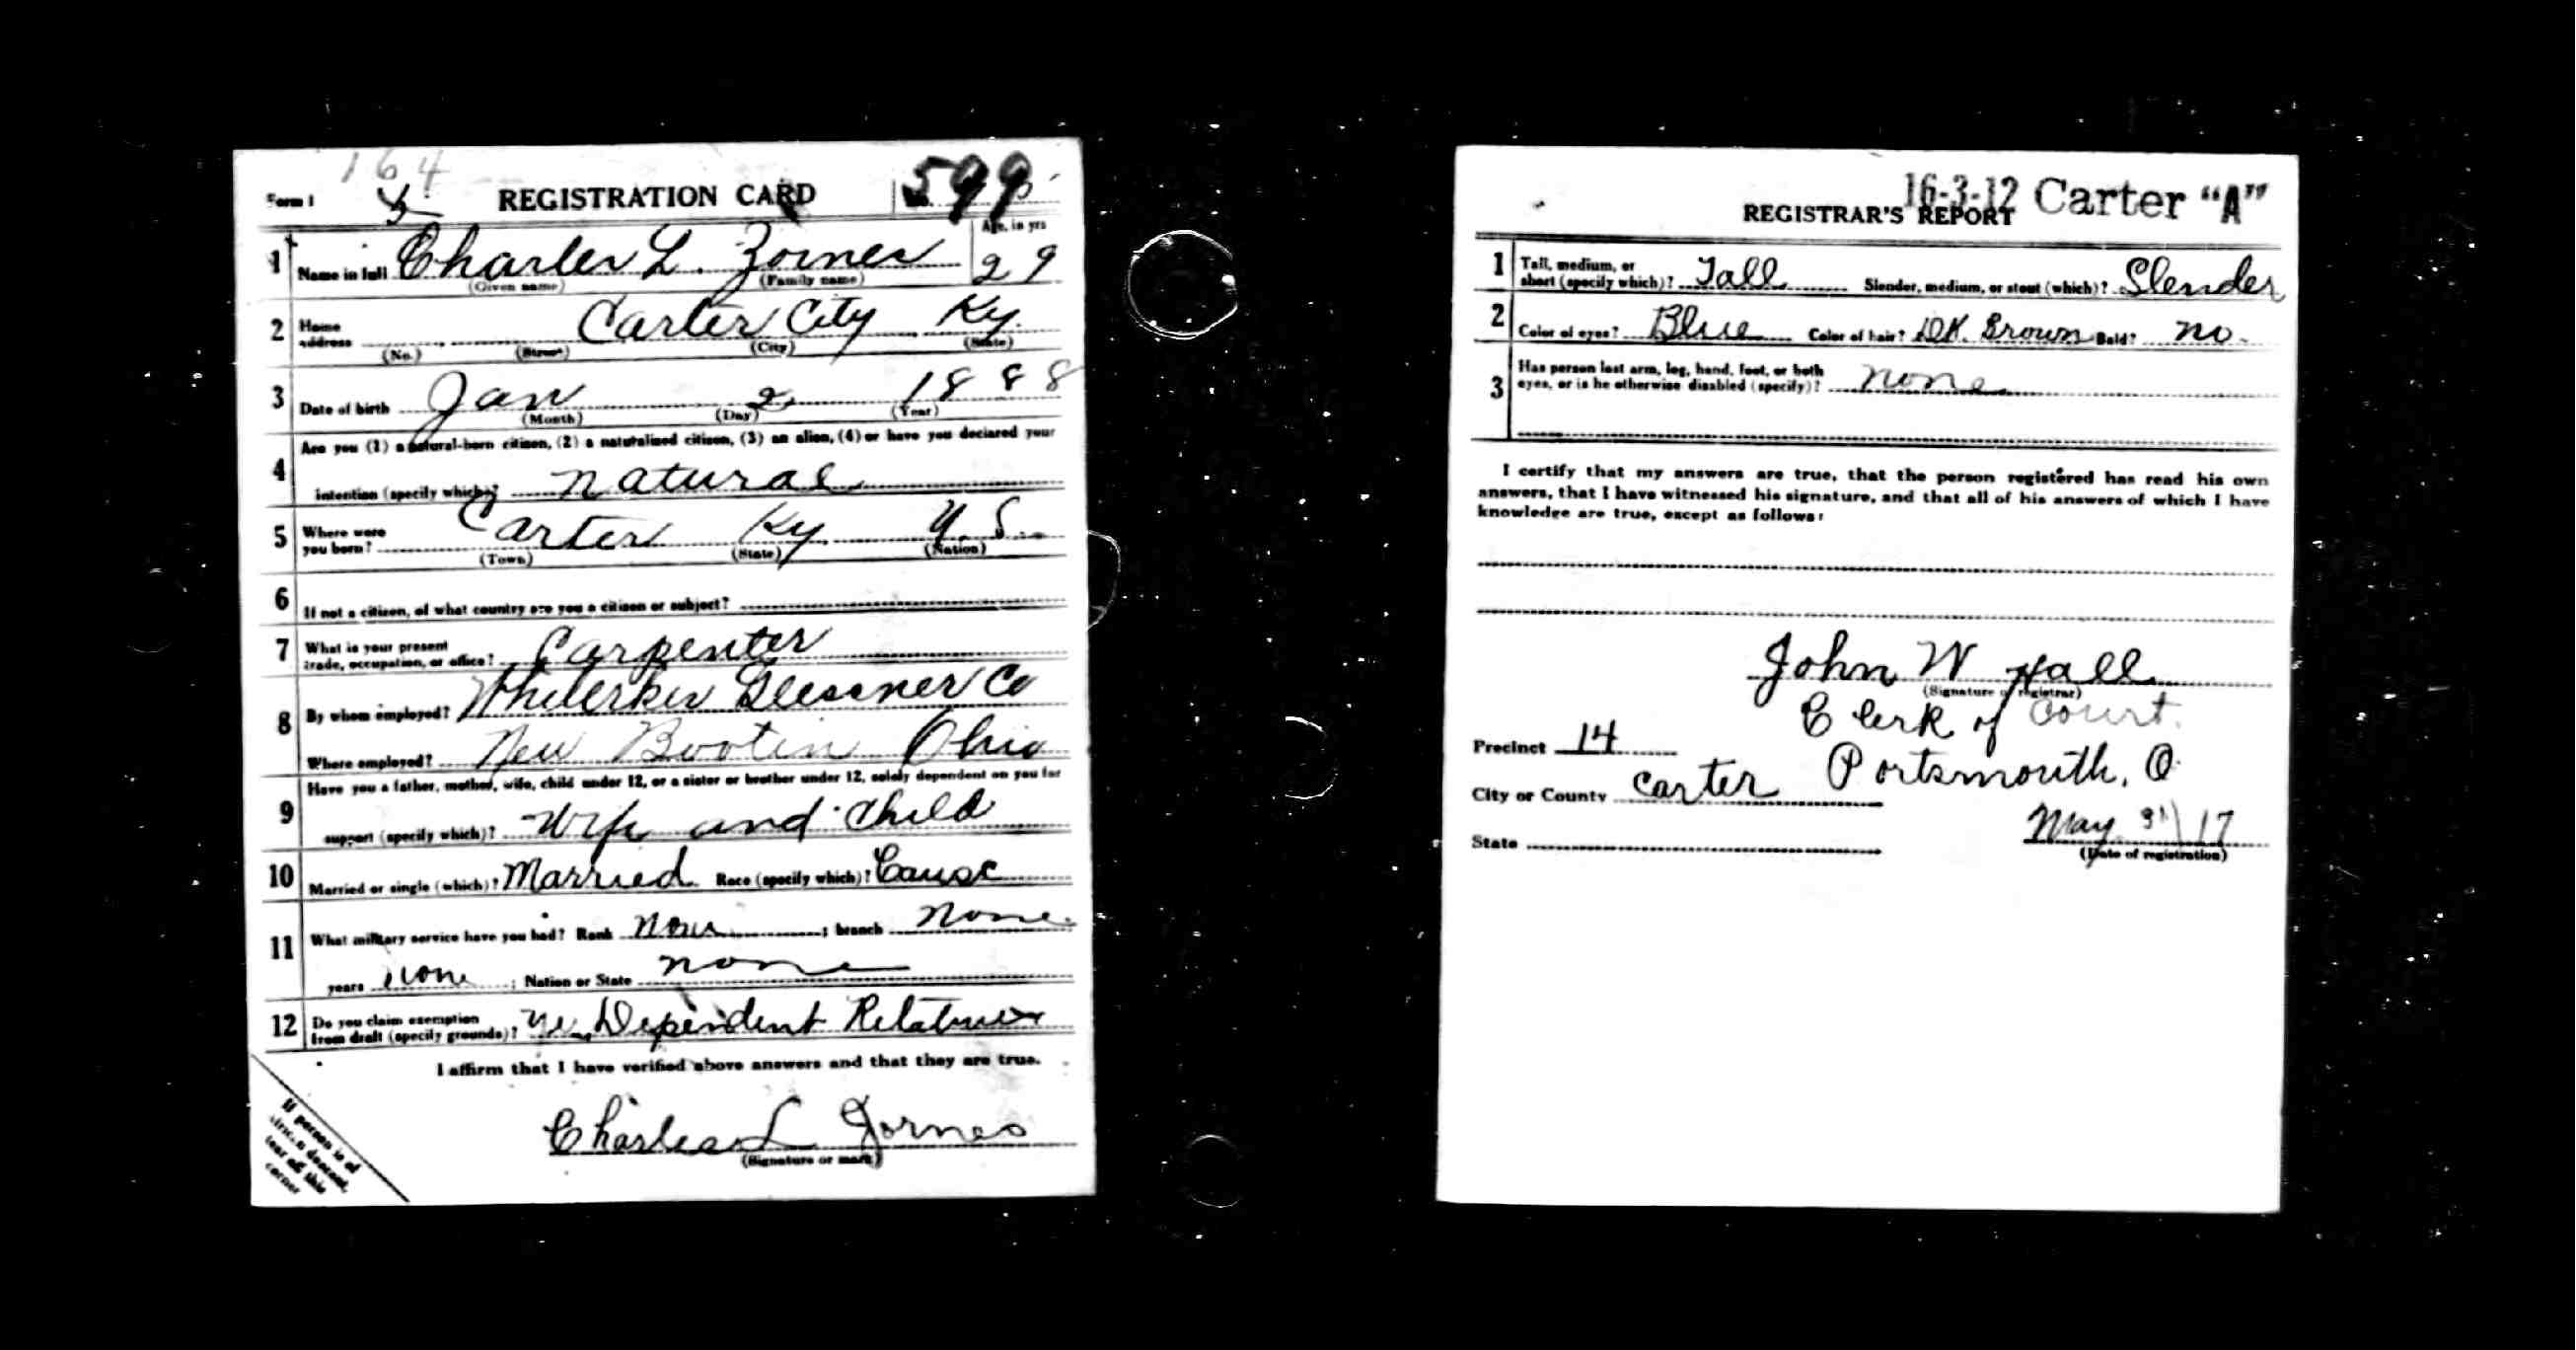 164
Form 1 REGISTRATION CARD No. 599
Age, in yrs
1 Name in full Charles L. Zornes 29
(Given name) (Family name)
2 Home address Carter City Ky.
(No.) (Street) (City) (State)
3 Date of birth Jan 2 1888
(Month) (Day) (Year)
Are you (1) a natural-born citizen, (2) a naturalized citizen, (3) an alien, (4) or have you declared your
4 intention (specify which)? natural
5 Where were you born? Carter Ky. U.S.
(Town) (State) (Nation)
6 If not a citizen, of what country are you a citizen or subject?
7 What is your present trade, occupation, or office? Carpenter
8 By whom employed? Co
Where employed? New Ohio
Have you a father, mother, wife, child under 12, or a sister or brother under 12, solely dependent on you for
9 support (specify which)? Wife and Child
10 Married or single (which)? Married Race (specify which)? Cauac
11 What military service have you had? Rank None ; branch None.
years none ; Nation or State none
12 Do you claim exemption from draft (specify grounds)? Yes, Dependent Relatives
I affirm that I have verified above answers and that they are true.
Charles L Zornes
(Signature or mark)
If person is of
African descent,
tear off this
corner
16-3-12 Carter "A"
REGISTRAR'S REPORT
1 Tall, medium, or short (specify which)? Tall Slender, medium, or stout (which)? Slender
2 Color of eyes? Blue Color of hair? DK. Brown Bald? no.
3 Has person lost arm, leg, hand, foot, or both eyes, or is he otherwise disabled (specify)? none
I certify that my answers are true, that the person registered has read his own
answers, that I have witnessed his signature, and that all of his answers of which I have
knowledge are true, except as follows:
John W Hall
(Signature of registrar)
Clerk of Court.
Precinct 14
Portsmouth, O.
City or County Carter
May 31 17
State
(Date of registration)